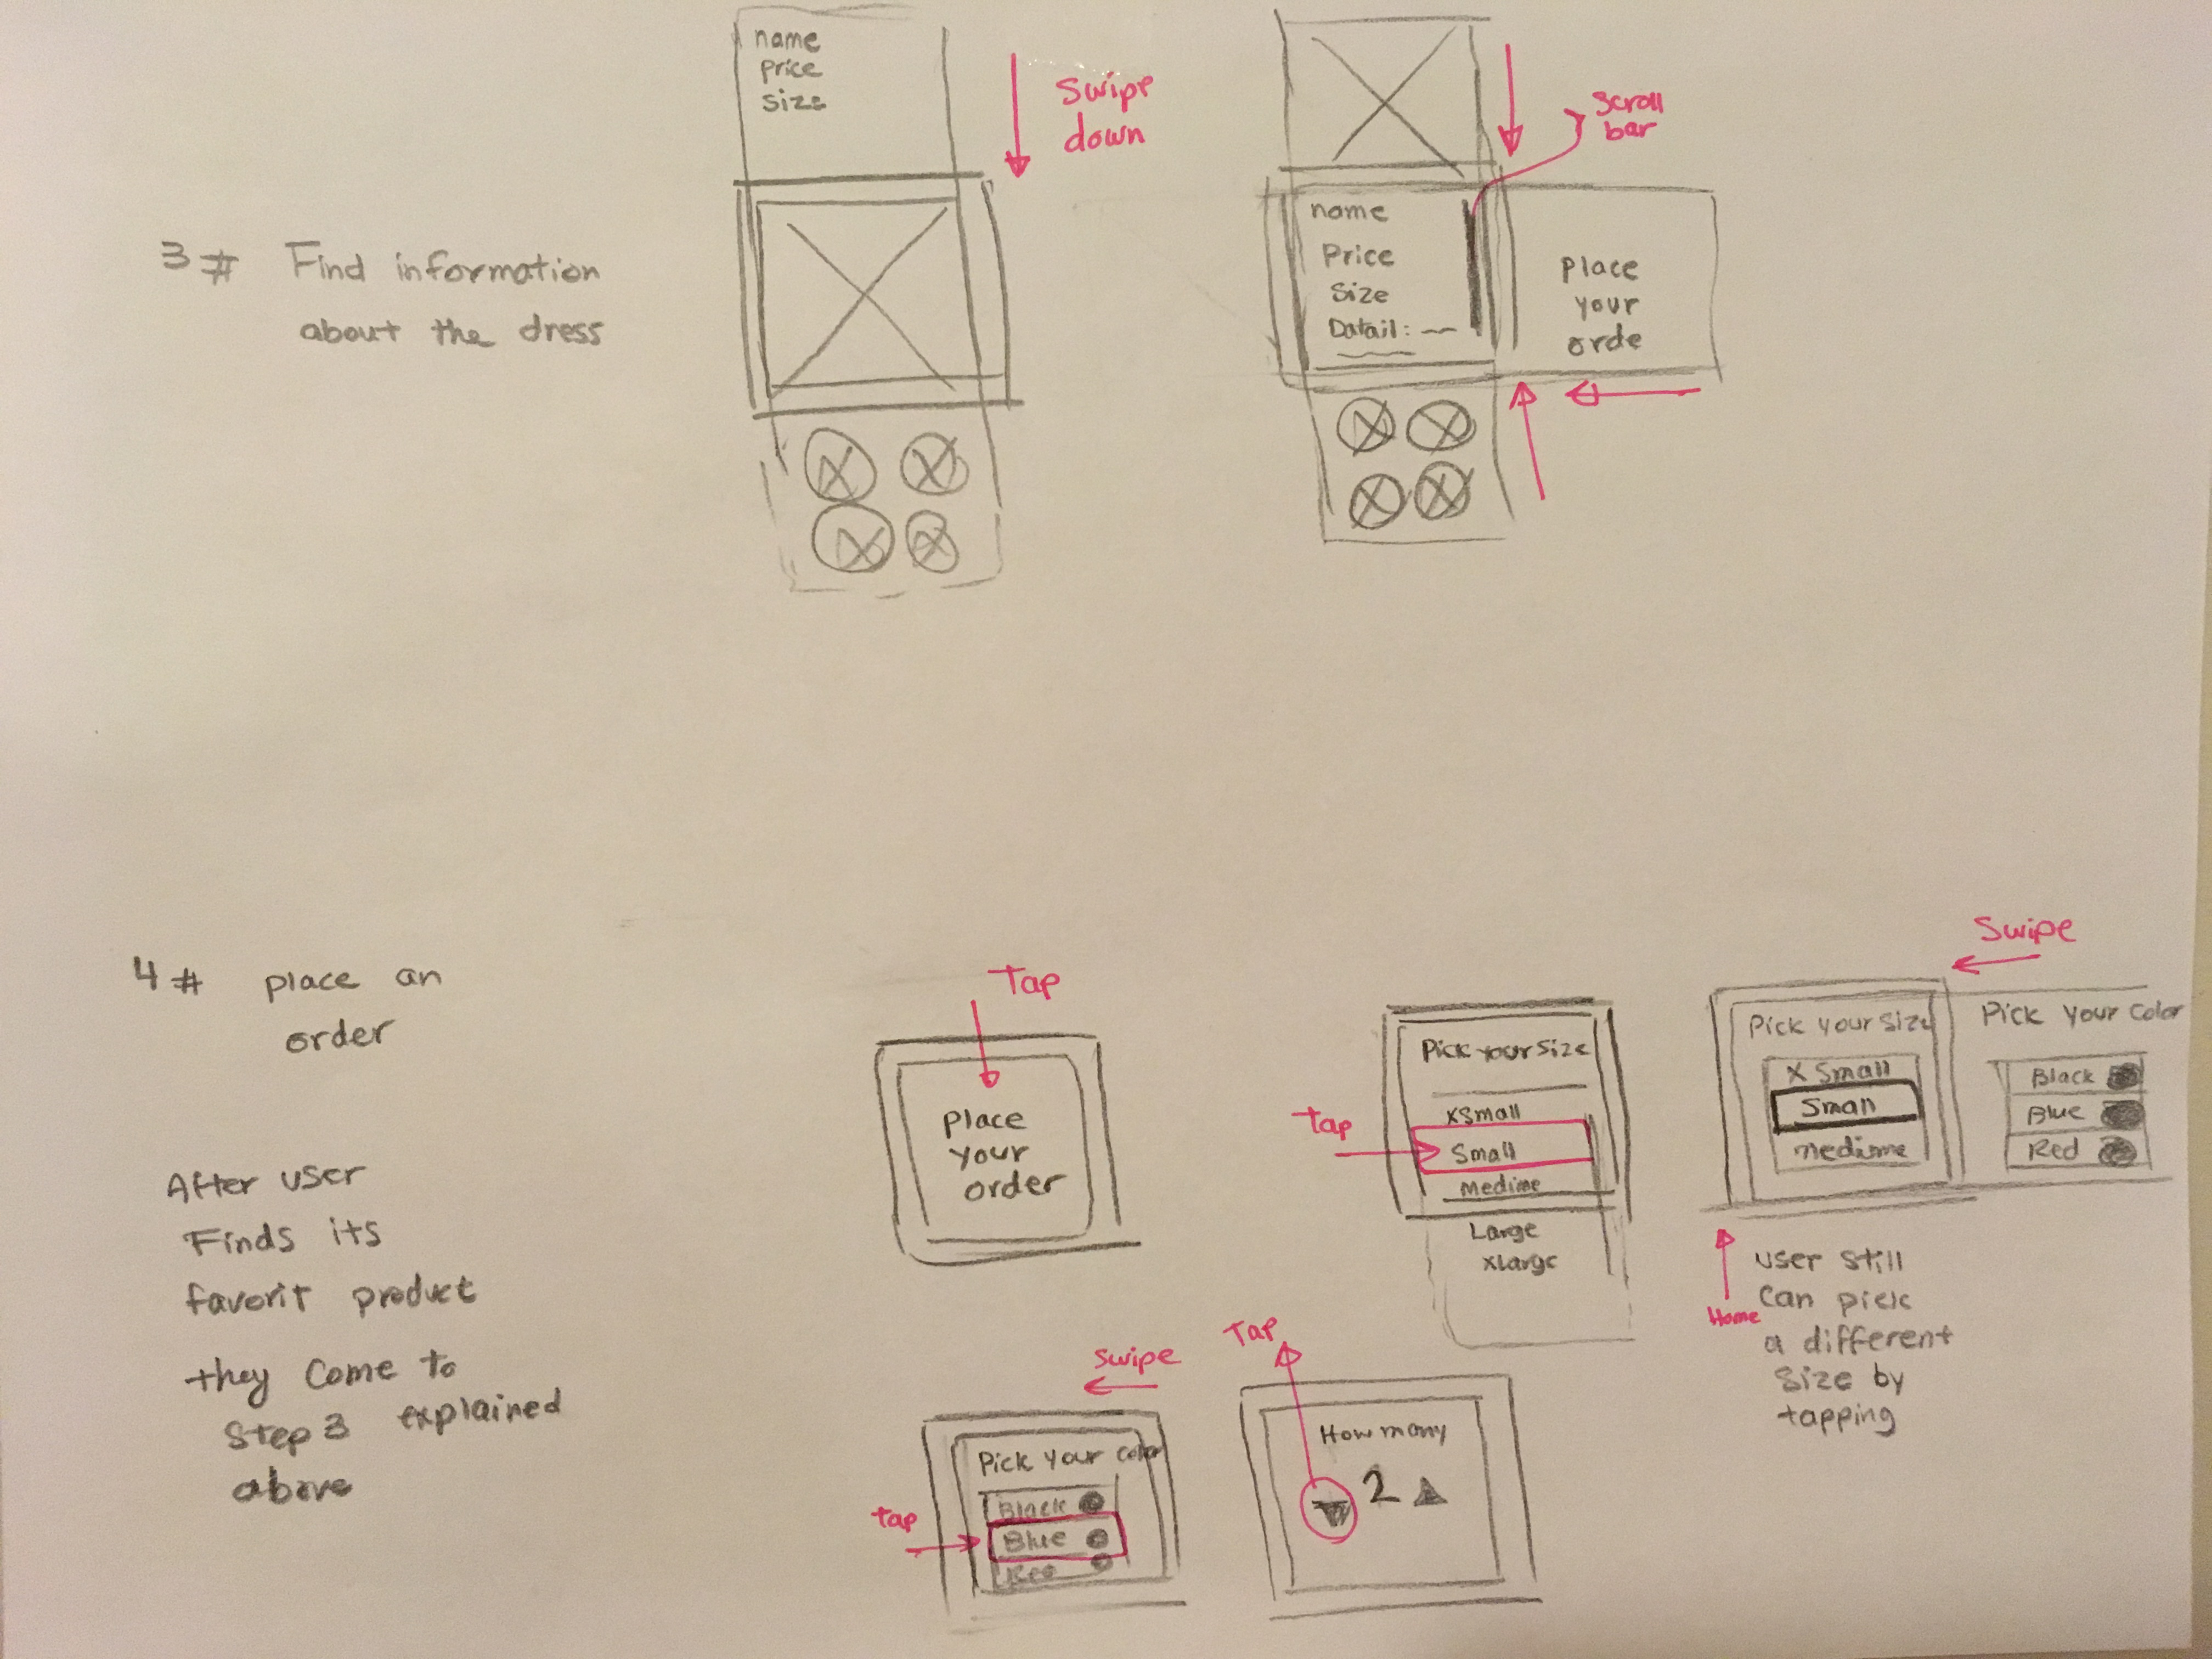 3# Find information
about the dress
name
price
size
Swipe
down
Scroll
bar
name
Price
Size
Datail:
place
your
orde
4# place an
order
After user
Finds its
favorit product
they Come to
Step 3 explained
above
Tap
place
your
order
Pick your Size
Tap
xSmall
Small
medime
Large
xLarge
Swipe
Pick your Size
X Small
Small
medieme
Pick your Color
Black
Blue
Red
Home
user still
Can pick
a different
Size by
tapping
swipe
Pick your color
tap
Black
Blue
Red
Tap
How many
2